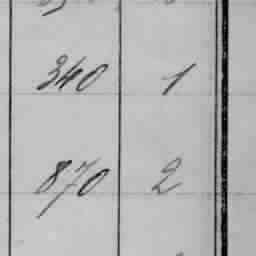 340 1
870 2